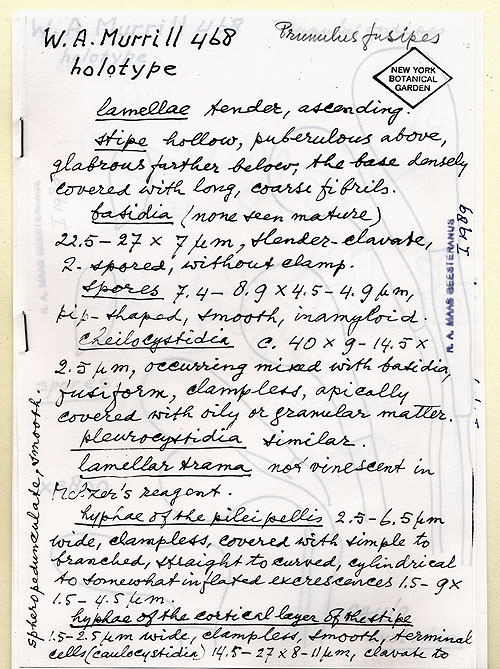 W. A. Murrill 468
Prunulus fusipes
holotype
NEW YORK
BOTANICAL
GARDEN
lamellae tender, ascending.
stipe hollow, puberulous above,
glabrous farther below, the base densely
covered with long, coarse fibrils.
basidia (none seen mature)
22.5–27 × 7 µm, slender-clavate,
2-spored, without clamp.
spores 7.4–8.9 × 4.5–4.9 µm,
pip-shaped, smooth, inamyloid.
cheilocystidia c. 40 × 9–14.5 ×
2.5 µm, occurring mixed with basidia,
fusiform, clampless, apically
covered with oily or granular matter.
pleurocystidia similar.
lamellar trama not vinescent in
Melzer's reagent.
hyphae of the pileipellis 2.5–6.5 µm
wide, clampless, covered with simple to
branched, straight to curved, cylindrical
to somewhat inflated excrescences 1.5–9 ×
1.5–4.5 µm.
hyphae of the cortical layer of the stipe
1.5–2.5 µm wide, clampless, smooth, terminal
cells (caulocystidia) 14.5–27 × 8–11 µm, clavate to
spheropedunculate, smooth.
R. A. MAAS GEESTERANUS
I 1989